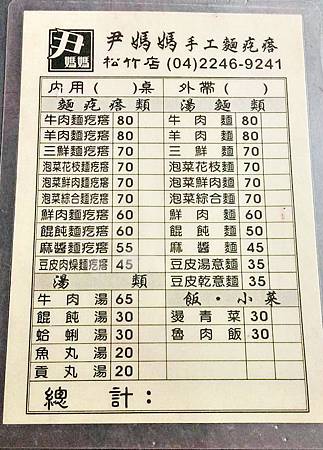 尹 媽媽 尹媽媽 手工麵疙瘩
松竹店 (04)2246-9241
內用( )桌 外帶( )
麵疙瘩類 湯麵類
牛肉麵疙瘩 80 牛肉麵 80
羊肉麵疙瘩 80 羊肉麵 80
三鮮麵疙瘩 70 三鮮麵 70
泡菜花枝麵疙瘩 70 泡菜花枝麵 70
泡菜鮮肉麵疙瘩 70 泡菜鮮肉麵 70
泡菜綜合麵疙瘩 70 泡菜綜合麵 70
鮮肉麵疙瘩 60 鮮肉麵 60
餛飩麵疙瘩 60 餛飩麵 50
麻醬麵疙瘩 55 麻醬麵 45
豆皮肉燥麵疙瘩 45 豆皮湯意麵 35
湯類 豆皮乾意麵 35
牛肉湯 65 飯・小菜
餛飩湯 30 燙青菜 30
蛤蜊湯 30 魯肉飯 30
魚丸湯 20
貢丸湯 20
總計：